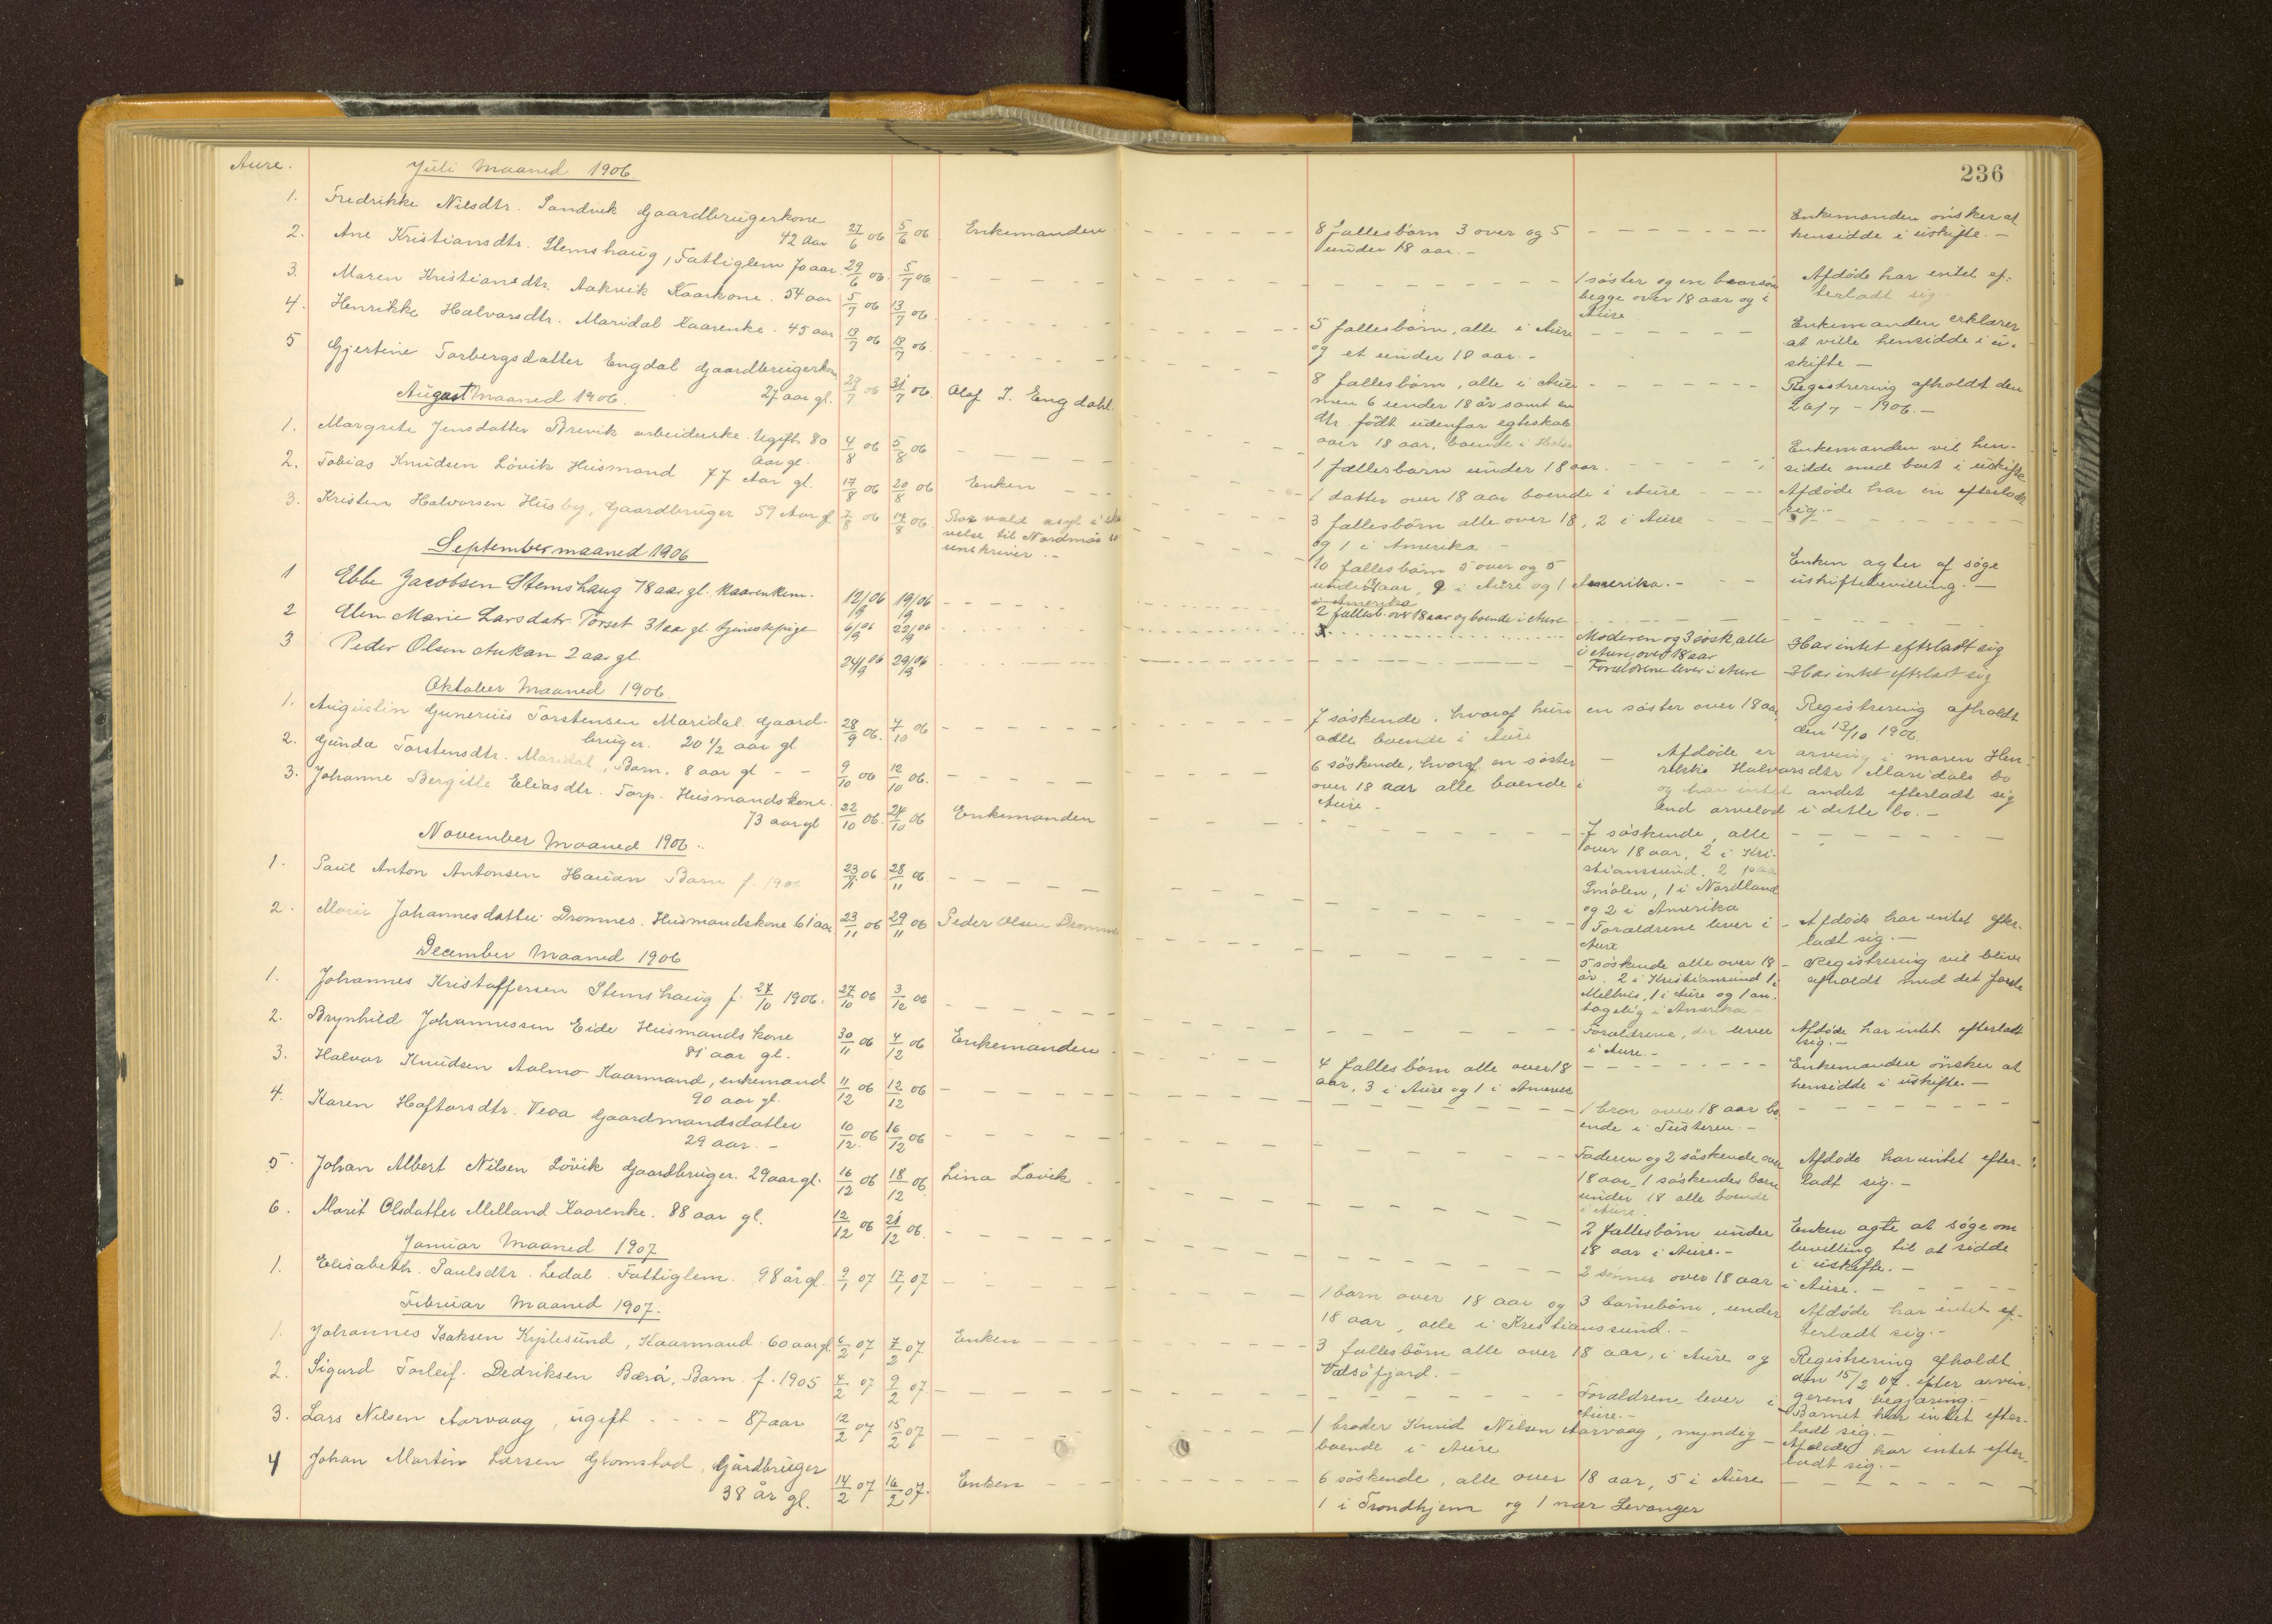 Aure.
Juli Maaned 1906.
1. Fredrikke Nilsdtr. Sandvik Gaardbrugerkone
42 Aar 27/6 06 5/6 06 Enkemanden
2. Ane Kristiansdtr. Stemshaug, Fattiglem 70 aar. 29/6 06. 5/7 06
3. Maren Kristiansdtr. Aakvik Kaarkone. 54 aar 5/7 06 13/7 06.
4. Henrikke Halvarsdtr. Maridal Kaarenke. 45 aar 13/7 06 13/7 06.
5 Gjertine Torbergsdatter Engdal Gaardbrugerkone
27 aar gl. 29/7 06 31/7 06. Olaf J. Engdahl
August Maaned 1906.
1. Margrete Jensdatter Brevik arbeiderske. Ugift 80
Aar gl. 4/8 06 5/8 06
2. Tobias Knudsen Lövik Husmand 77 Aar gl. 17/8 06 20/8 06 Enken
3. Kristen Halvorsen Husby, Gaardbruger 59 Aar gl 7/8 06 17/8 06
velse til Nordmör
September maaned 1906
1 Ebbe Jacobsen Stemshaug 78 aar gl. Kaarenkem. 12/9 06 19/9 06
2 Elen Marie Larsdatr. Torset 31 aar gl. tjenestepige 6/9 06 22/9 06
3 Peder Olsen Aukan 2 aar gl. 24/9 06 29/9 06
Oktober Maaned 1906.
1. Augustin Gunerius Torstensen Maridal. Gaard-
bruger. 20 1/2 aar gl 28/9 06. 7/10 06
2. Gunda Torstensdtr. Maridal, Barn. 8 aar gl - - 9/10 06 12/10 06.
3. Johanne Bergitte Eliasdtr. Torp. Husmandskone.
73 aar gl 22/10 06. 24/10 06 Enkemanden
November Maaned 1906.
1. Paul Anton Antonsen Hauan Barn f. 1906 23/11 06. 28/11 06.
2. Marie Johannesdatter Drommes. Husmandskone 61 aar 23/11 06 29/11 06 Peder Olsen Drommes
December Maaned 1906
1. Johannes Kristoffersen Stemshaug f. 27/10 1906. 27/10 06 3/12 06
2. Brynhild Johannessen Eide Husmandskone
81 aar gl. 30/11 06 4/12 06 Enkemanden
3. Halvor Knudsen Aalmo Kaarmand, enkemand
90 aar gl. 11/12 06 12/12 06
4. Karen Haftorsdtr. Veoa Gaardmandsdatter
29 aar. - 10/12. 06 16/12 06
5. Johan Albert Nilsen Lövik Gaardbruger. 29 aar gl. 16/12 06 18/12 06. Lina Lövik
6. Marit Olsdatter Melland Kaarenke. 88 aar gl. 12/12 06 21/12 06.
Januar Maaned 1907
1. Elisabeth. Paulsdtr. Ledal. Fattiglem. 98 år gl. 9/1 07 17/1 07
Februar Maaned 1907.
1. Johannes Isaksen Kjplesund, Kaarmand. 60 aar gl 6/2 07 7/2 07 Enken
2. Sigurd Torleif. Dedriksen Bærö, Barn. f. 1905 4/2 07 9/2 07.
3. Lars Nilsen Aarvaag, ugift - - - - 87 aar 12/2 07 15/2 07
4 Johan Martin Larsen Glomstad, Gårdbruger
38 år gl. 14/2 07 16/2 07. Enken
236
8 fallesbörn 3 over og 5
under 18 aar. -
Enkemanden önsker at
hensidde i uskifte. -
1 söster og en
begge over 18 aar og i
Aure
Afdöde har entet ef-
terladt sig
5 fallesbörn, alle i Aure
og et under 18 aar. -
Enkemanden erklærer
at ville hensidde i u-
skifte. -
8 fallesbörn, alle i Aure
men 6 under 18 år samt en
dtr. födt udenfor egteskab
over 18 aar, boende i
Registrering afholdt den
1906. -
1 fællesbarn under 18 aar.
Enkemanden vil hen-
sidde med boet i uskifte
1 datter over 18 aar boende i Aure
Afdöde har in efterladt
sig. -
3 fallesbörn alle over 18, 2 i Aure
og 1 i Amerika -
10 fallesbörn 5 over og 5
under 18 aar, 9 i Aure og 1 Amerika. -
i Amerika
Enken agter af söge
uskiftebevilling. -
2 fallesb. over 18 aar og boende i Aure
Moderen og 3 søsk. alle
i Aure, over 18 aar
Har intet efterladt sig
Forældrene lever i Aure
Har intet efterladt sig
7 söskende. hvoraf kun en söster over 18 aar
alle boende i Aure
Registrering afholdt
den 13/10 1906.
6 söskende, hvoraf en söster
over 18 aar alle boende i
Aure -
Afdöde er arving i maren Hen-
rikke Halvarsdtr Maridals bo
og har intet andet efterladt sig
end arvelod i dette bo. -
7 söskende, alle
over 18 aar, 2 i Kri-
stianssund, 2 paa
Smölen, 1 i Nordland
og 2 i Amerika
Forældrene lever i
Aure
Afdöde har intet efter-
ladt sig. -
5 söskende alle over 18
år. 2 i Kristiansund 1 i
Melhus, 1 i Aure og 1 an-
tagelig i Amerika -
Registrering vil blive
afholdt med det förste
Forældrene, der lever
i Aure. -
Afdöde har intet efterladt
sig. -
4 fallesbörn alle over 18
aar, 3 i Aure og 1 i Amerika
Enkemanden önsker at
hensidde i uskifte. -
1 bror over 18 aar bo-
ende i Tusteren. -
Faderen og 2 söskende over
18 aar, 1 söskendes barn
under 18 alle boende
i Aure.
Afdöde har intet efter-
ladt sig. -
2 fallesbörn under
18 aar i Aure. -
Enken agte at söge om
bevilling til at sidde
i uskifte. -
2 sönner over 18 aar i Aure. -
1 barn over 18 aar og 3 barnebörn, under
18 aar, alle i Kristianssund. -
Afdöde har intet ef-
terladt sig. -
3 fallesbörn alle over 18 aar, i Aure og
Valsöfjord. -
Registrering afholdt
den 15/2 07. efter arvin-
gerens begjæring. -
Forældrene lever i
Aure. -
Barnet har intet efter-
ladt sig. -
1 broder Knud Nilsen Aarvaag, myndig
boende i Aure
Afdöde har intet efter-
ladt sig. -
6 söskende, alle over 18 aar, 5 i Aure
1 i Trondhjem og 1 nær Levanger